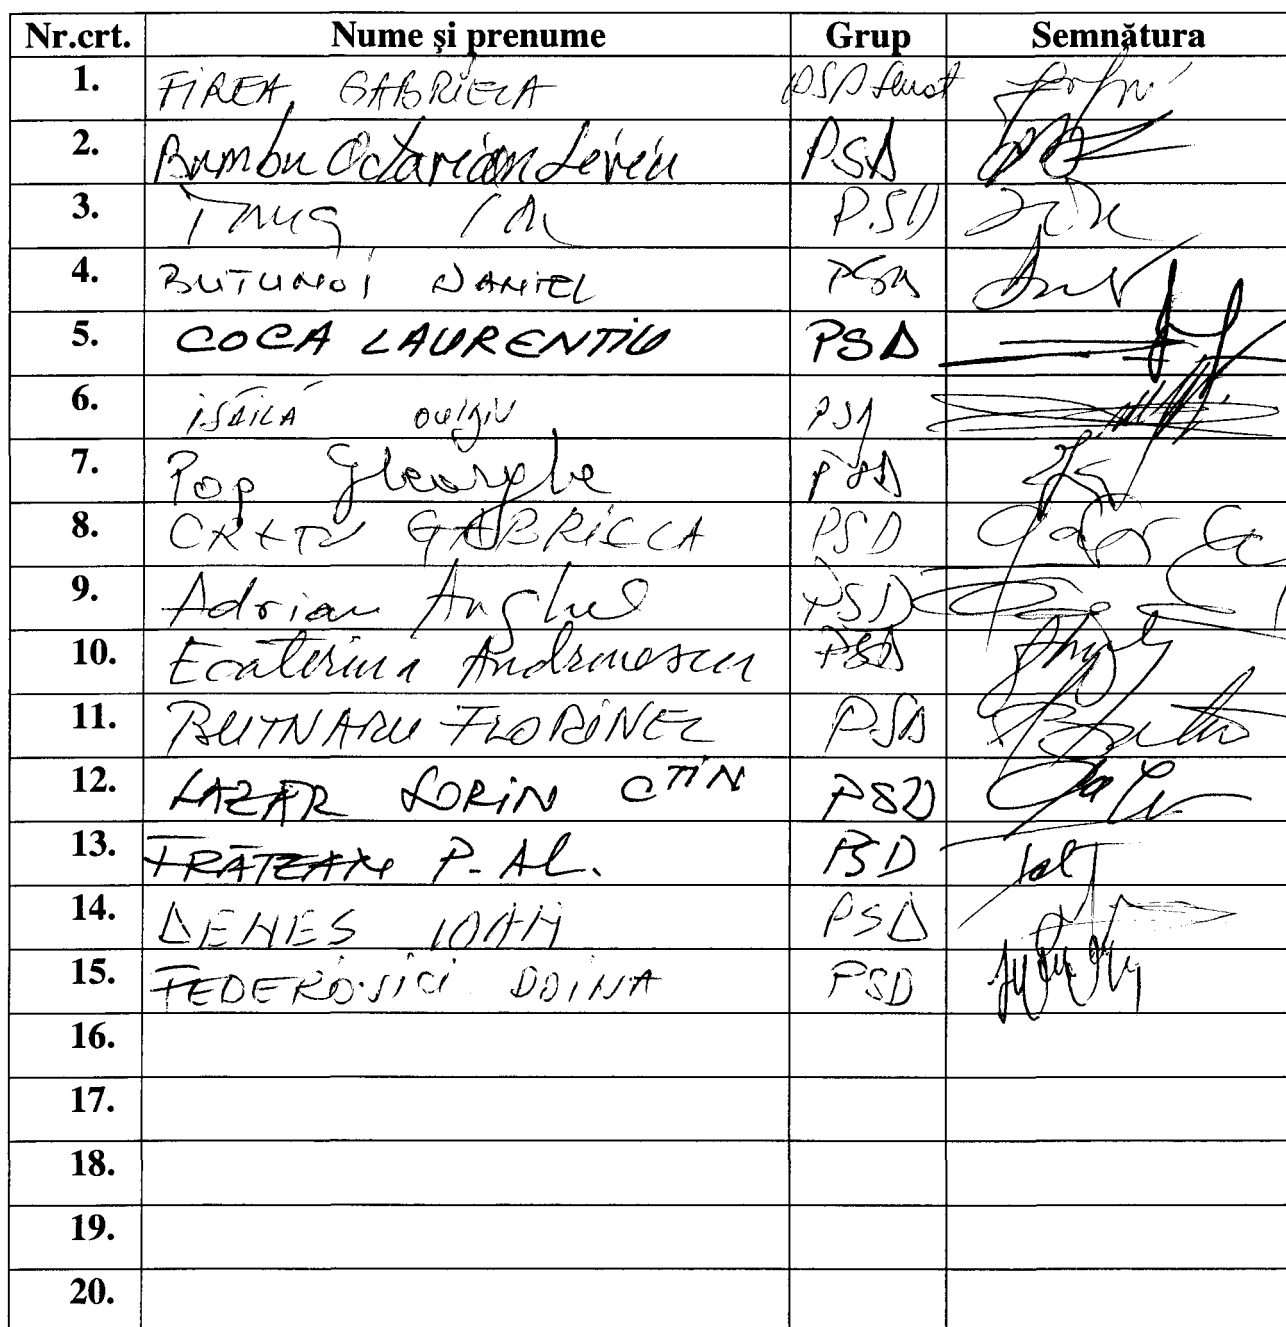 Nr.crt. Nume și prenume Grup Semnătura
1. FIREA GABRIELA PSD Senat
2. Bumbu Octavian Liviu PSD
3. PSD
4. BUTUNOI DANIEL PSD
5. COCA LAURENTIU PSD
6. ISĂILĂ OVIDIU PSD
7. Pop Gheorghe PSD
8. CRETU GABRIELA PSD
9. Adrian Anghel PSD
10. Ecaterina Andronescu PSD
11. BUTNARU FLORINEL PSD
12. LAZĂR SORIN CTIN PSD
13. FRĂTEAN P. AL. PSD
14. DENEȘ IOAN PSD
15. FEDEROVICI DOINA PSD
16.
17.
18.
19.
20.